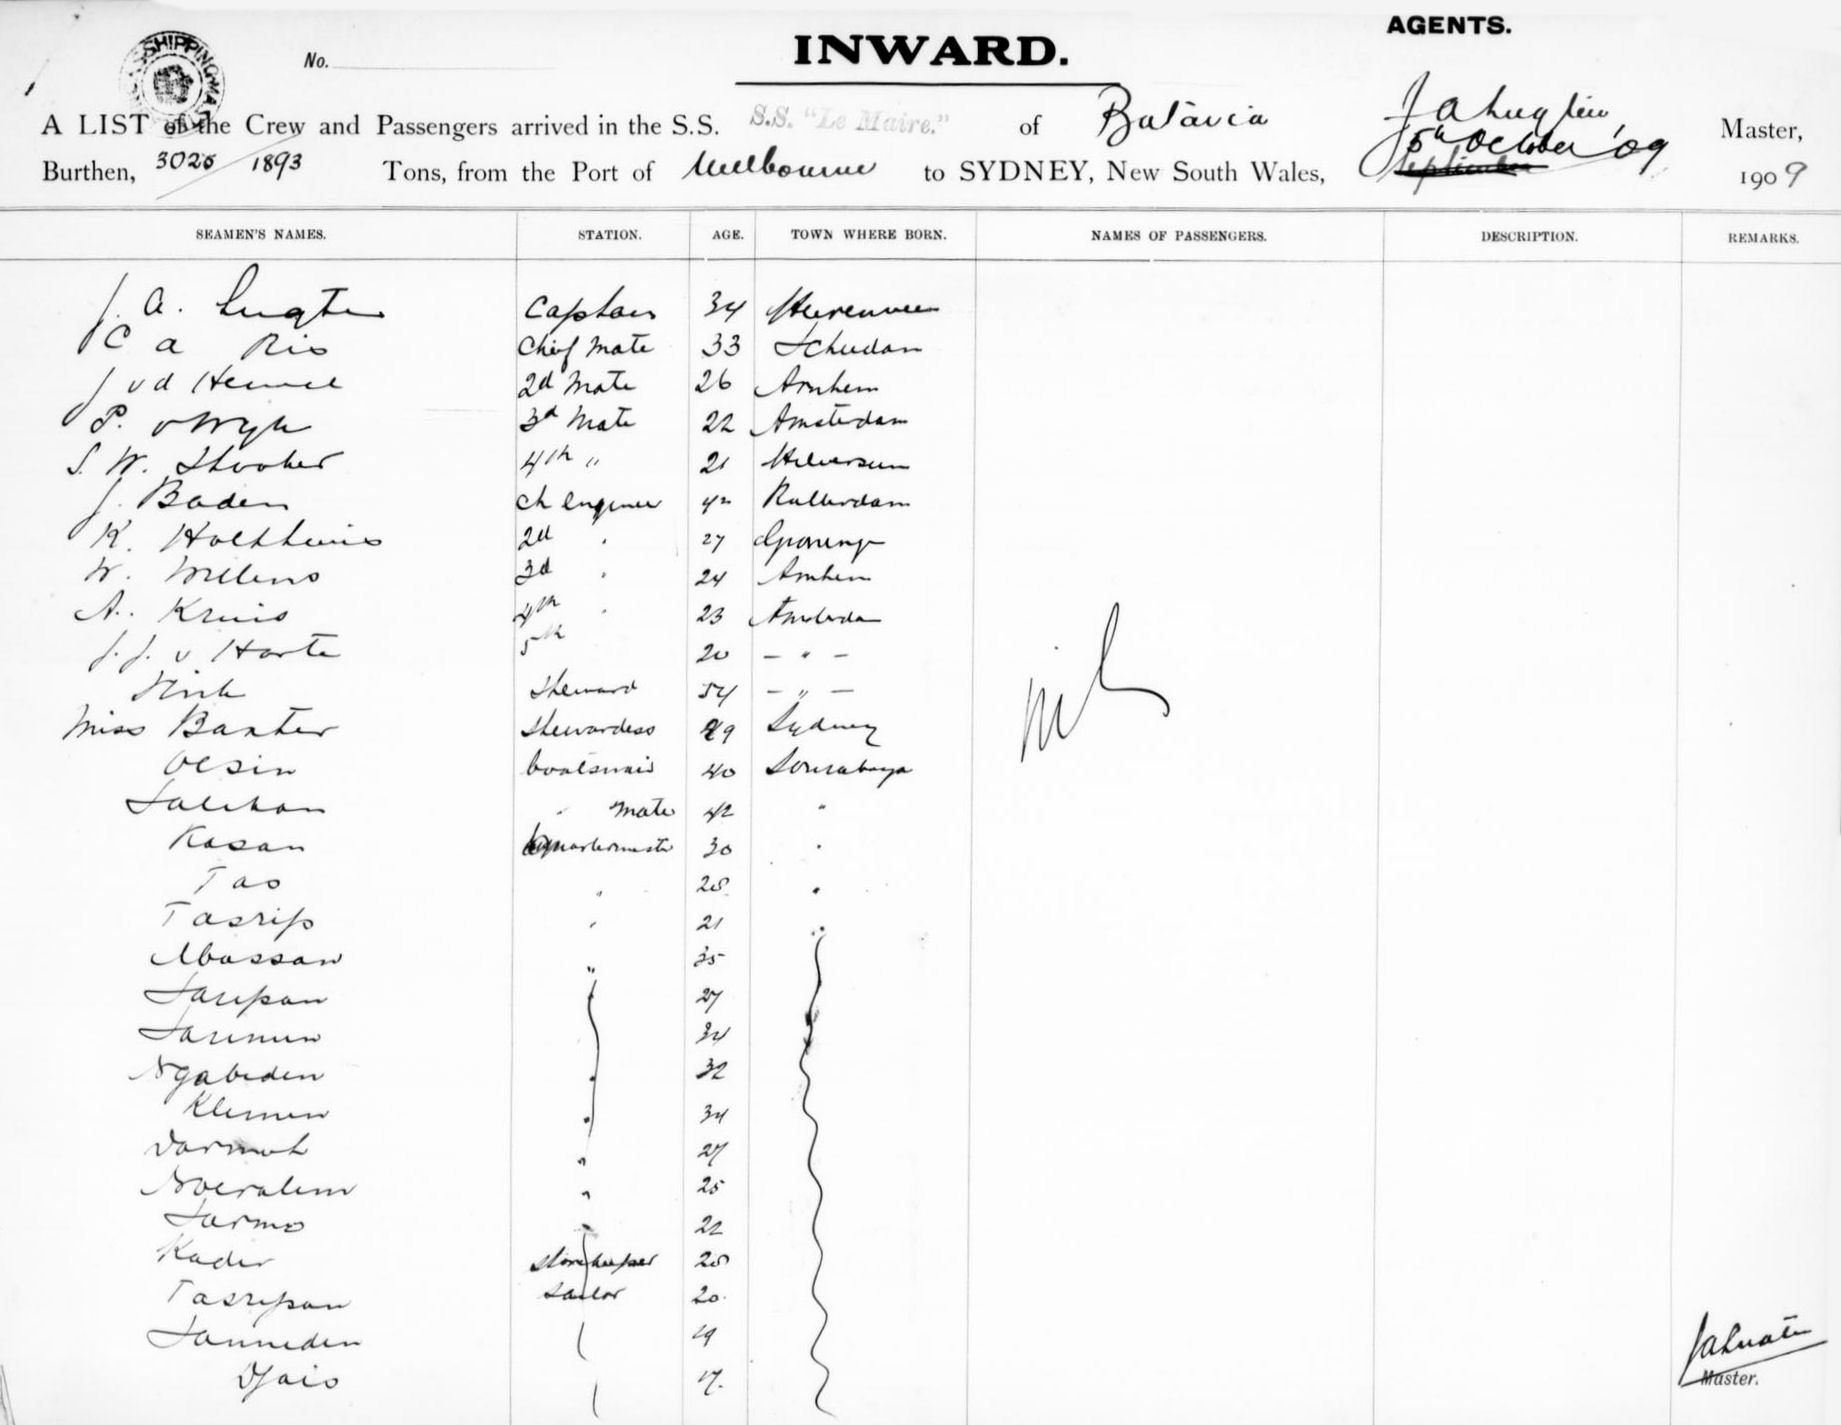 AGENTS.
INWARD.
SHIPPING MAS
No.
A LIST of the Crew and Passengers arrived in the S.S. S.S. "Le Maire." of Batavia J A Lugten Master,
Burthen, 3025 1893 Tons, from the Port of Melbourne to SYDNEY, New South Wales, 5th October '09 September 1909
SEAMEN'S NAMES. STATION. AGE. TOWN WHERE BORN. NAMES OF PASSENGERS. DESCRIPTION. REMARKS.
J. A. Lugten Captain 34 Heerenveen
C A Ris Chief Mate 33 Schiedam
J vd 2d Mate 26 Arnhem
P. v Wyk 3d Mate 22 Amsterdam
S. W. Stooker 4th " 21 Hilversum
J. Baden Ch Engineer 42 Rotterdam
K. Holthuis 2d " 27
W. Willems 3d " 24 Arnhem
A. Kruis 4th " 23 Amsterdam
J. J. v Harte 5th 20 - " -
Steward 54 - " -
Miss Baxter Stewardess 49 Sydney
Oesin boatswain 40 Sourabaya
Salihan " mate 42 "
Kasan Quartermaster 30 "
Tas " 28 "
Tasrip " 21 "
Abassan " 35
Saripan 27
Sarimin 34
Ngabiden 32
Kliemen 34
Darmoh " 27
Noeralim " 25
Sarmo " 22
Kader storekeeper 28
Tasripan Sailor 20
Sanneden 19
Djais 17
Nil
J A Lugten
Master.